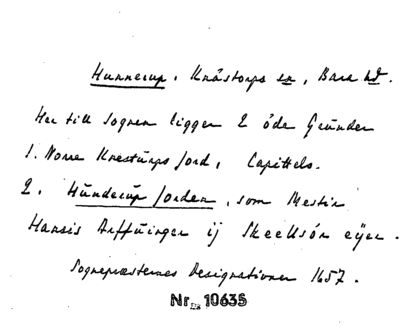 Hunnerup. Knästorps sn, Bara hd.
Her till Sognen ligger 2 öde Grunder
1. Norre Knestrups Jord, Capittels.
2. Hunderup Jorden, som Mestir
Hansis Arffuinger ij Skeelsör eÿer.
Sognepræsternes Designationer 1657.
Nr. 10635